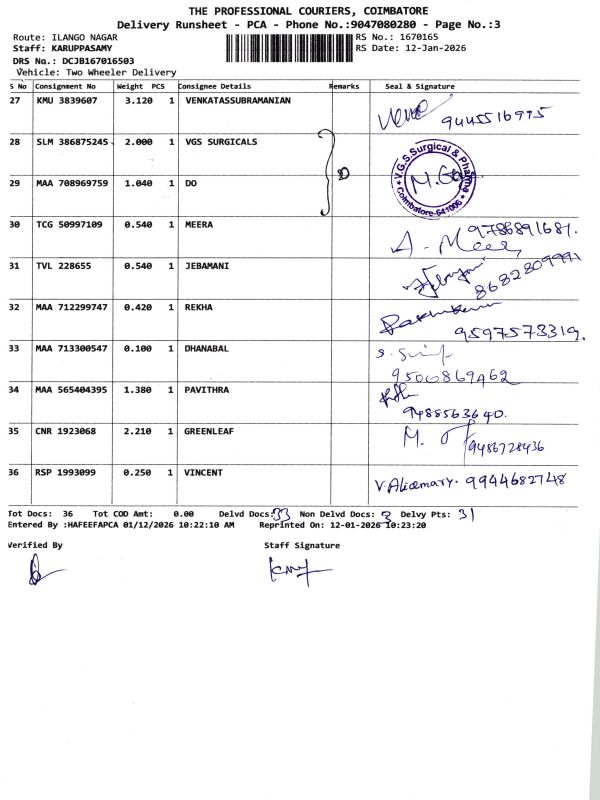 THE PROFESSIONAL COURIERS, COIMBATORE
Delivery Runsheet - PCA - Phone No.:9047080280 - Page No.:3
Route: ILANGO NAGAR
RS No.: 1670165
Staff: KARUPPASAMY
RS Date: 12-Jan-2026
DRS No.: DCJB167016503
Vehicle: Two Wheeler Delivery
S No Consignment No Weight PCS Consignee Details Remarks Seal & Signature
27 KMU 3839607 3.120 1 VENKATASSUBRAMANIAN
9445516975
28 SLM 386875245 2.000 1 VGS SURGICALS
V.G.S.Surgical & Pharma
Coimbatore-641006
29 MAA 708969759 1.040 1 DO
30 TCG 50997109 0.540 1 MEERA 9786891681.
A - Meer
31 TVL 228655 0.540 1 JEBAMANI
8682809991
32 MAA 712299747 0.420 1 REKHA
9597573319.
33 MAA 713300547 0.100 1 DHANABAL
9500869462
34 MAA 565404395 1.380 1 PAVITHRA
9488563640.
35 CNR 1923068 2.210 1 GREENLEAF M.
9486728436
36 RSP 1993099 0.250 1 VINCENT
V. 9944682748
Tot Docs: 36 Tot COD Amt: 0.00 Delvd Docs: 33 Non Delvd Docs: 3 Delvy Pts: 31
Entered By :HAFEEFAPCA 01/12/2026 10:22:10 AM Reprinted On: 12-01-2026 10:23:20
Verified By Staff Signature